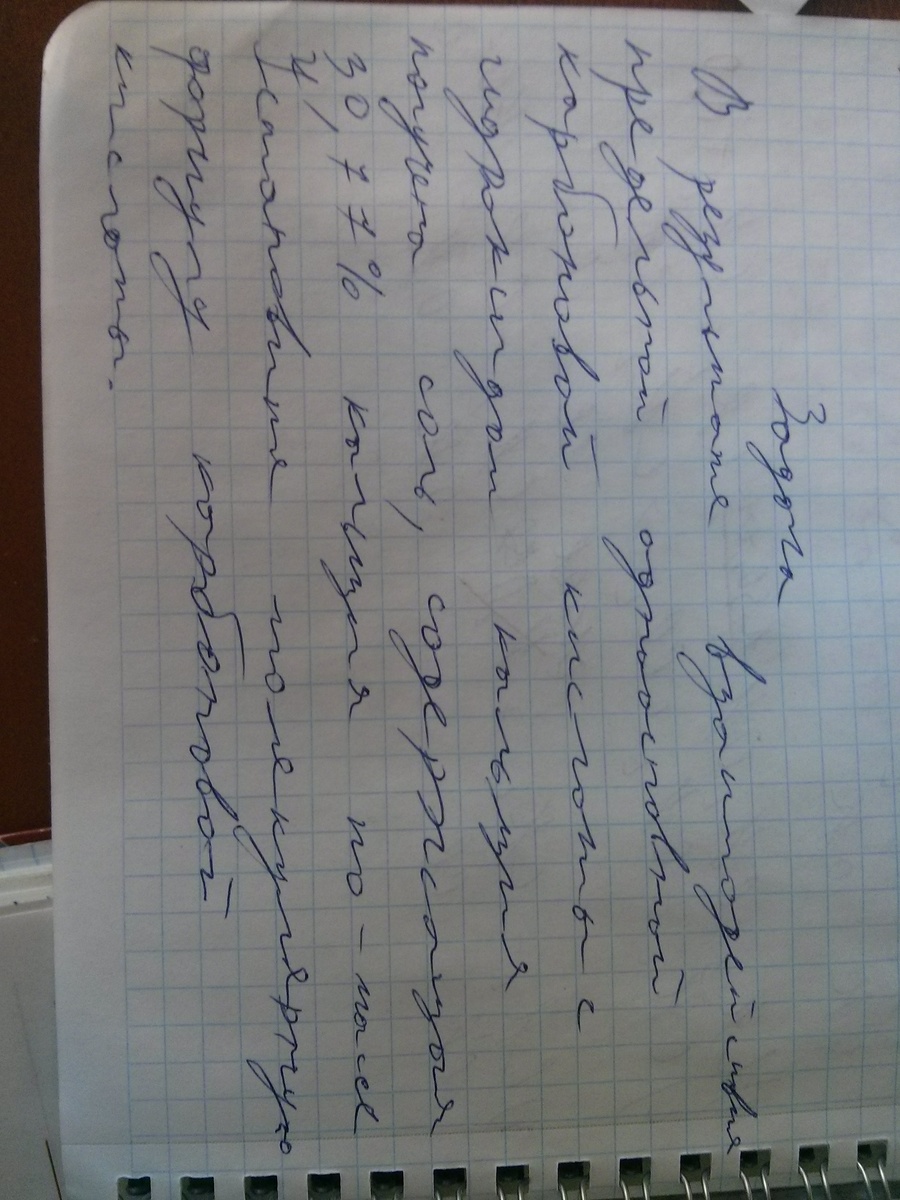 Задача
В результате взаимодействия
предельной одноосновной
карбоновой кислоты с
гидроксидом кальция
получена соль, содержащая
30,77% кальция по-массе
Установите молекулярную
формулу карбоновой
кислоты.